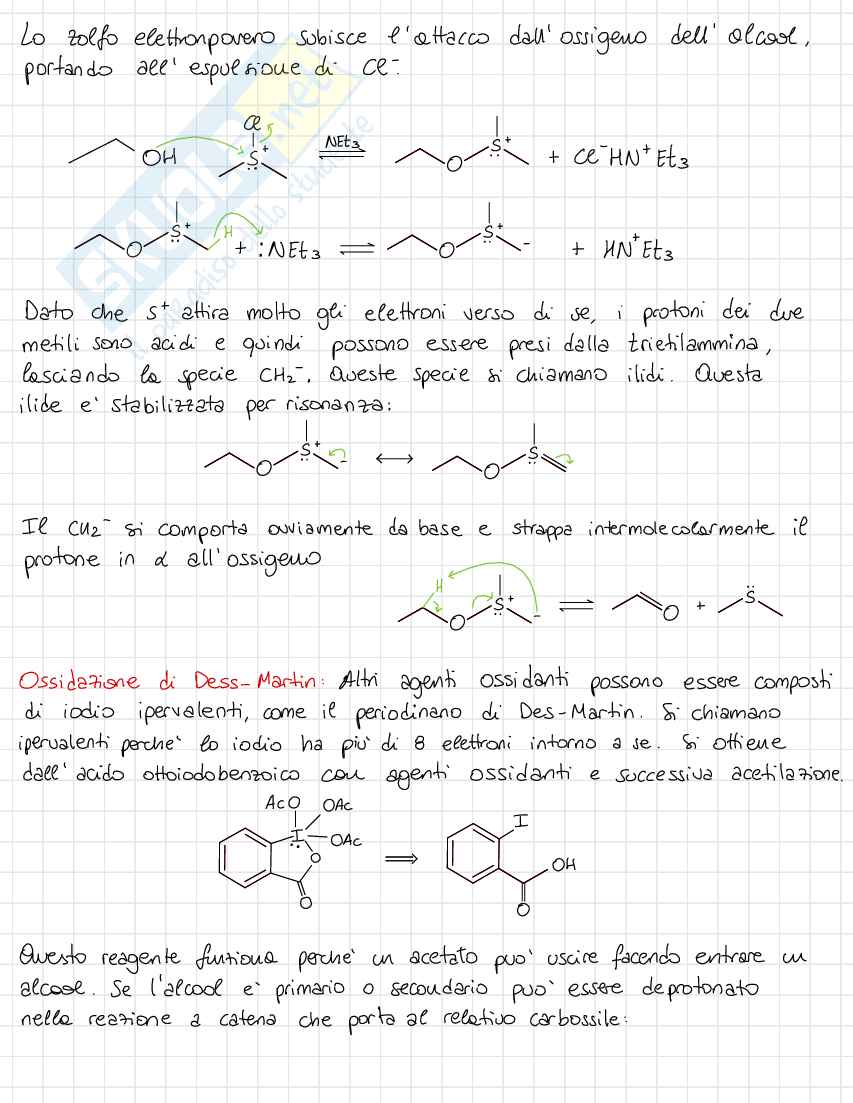 Lo zolfo elettronpovero subisce l'attacco dall'ossigeno dell'alcool,
portando all'espulsione di Cl⁻.
Cl
OH S⁺ NEt₃ O S⁺ + Cl⁻HN⁺Et₃
O S⁺ H + :NEt₃ O S⁺ - + HN⁺Et₃
Dato che S⁺ attira molto gli elettroni verso di se, i protoni dei due
metili sono acidi e quindi possono essere presi dalla trietilammina,
lasciando la specie CH₂⁻. Queste specie si chiamano ilidi. Questa
ilide e' stabilizzata per risonanza:
O S⁺ - O S
Il CH₂⁻ si comporta ovviamente da base e strappa intermolecolarmente il
protone in α all'ossigeno
H O S⁺ - O + S
Ossidazione di Dess-Martin: Altri agenti ossidanti possono essere composti
di iodio ipervalenti, come il periodinano di Des-Martin. Si chiamano
ipervalenti perche' lo iodio ha piu' di 8 elettroni intorno a se. Si ottiene
dall'acido ottoiodobenzoico con agenti ossidanti e successiva acetilazione.
AcO OAc
I OAc I
O OH
O O
Questo reagente funziona perche' un acetato puo' uscire facendo entrare un
alcool. Se l'alcool e' primario o secondario puo' essere deprotonato
nella reazione a catena che porta al relativo carbossile:
SKUOLA.net
il paradiso dello studente